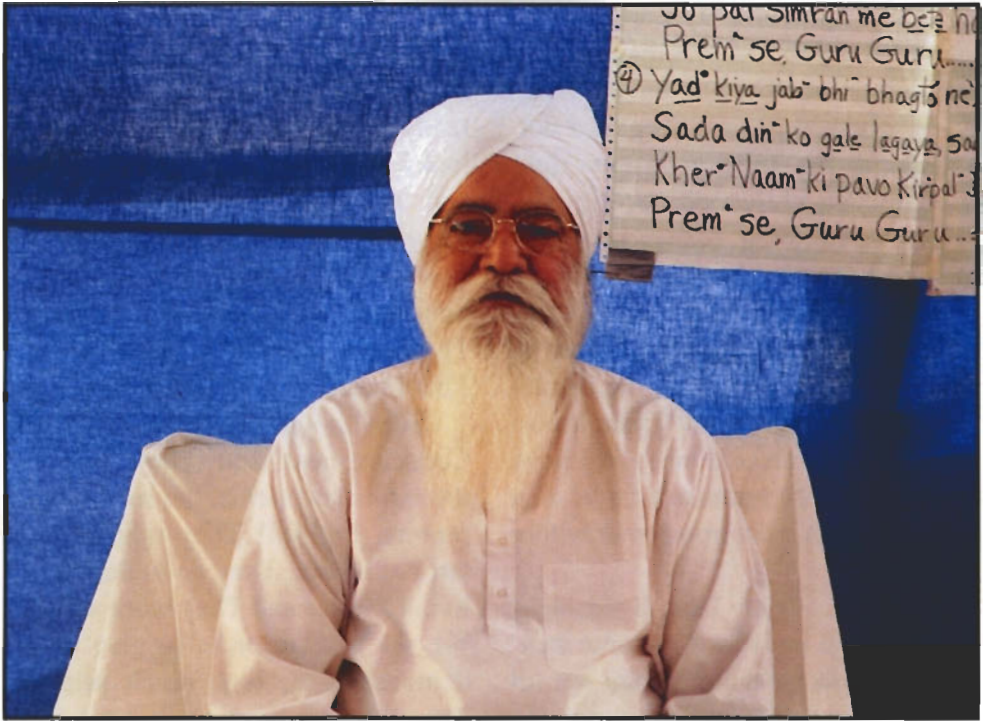 Jo pal Simran me
Prem se, Guru Guru.....
④ Yad kiya jab bhi bhagtō ne
Sada din ko gale lagaya,
Kher Naam ki pavo Kirpal
Prem se, Guru Guru...